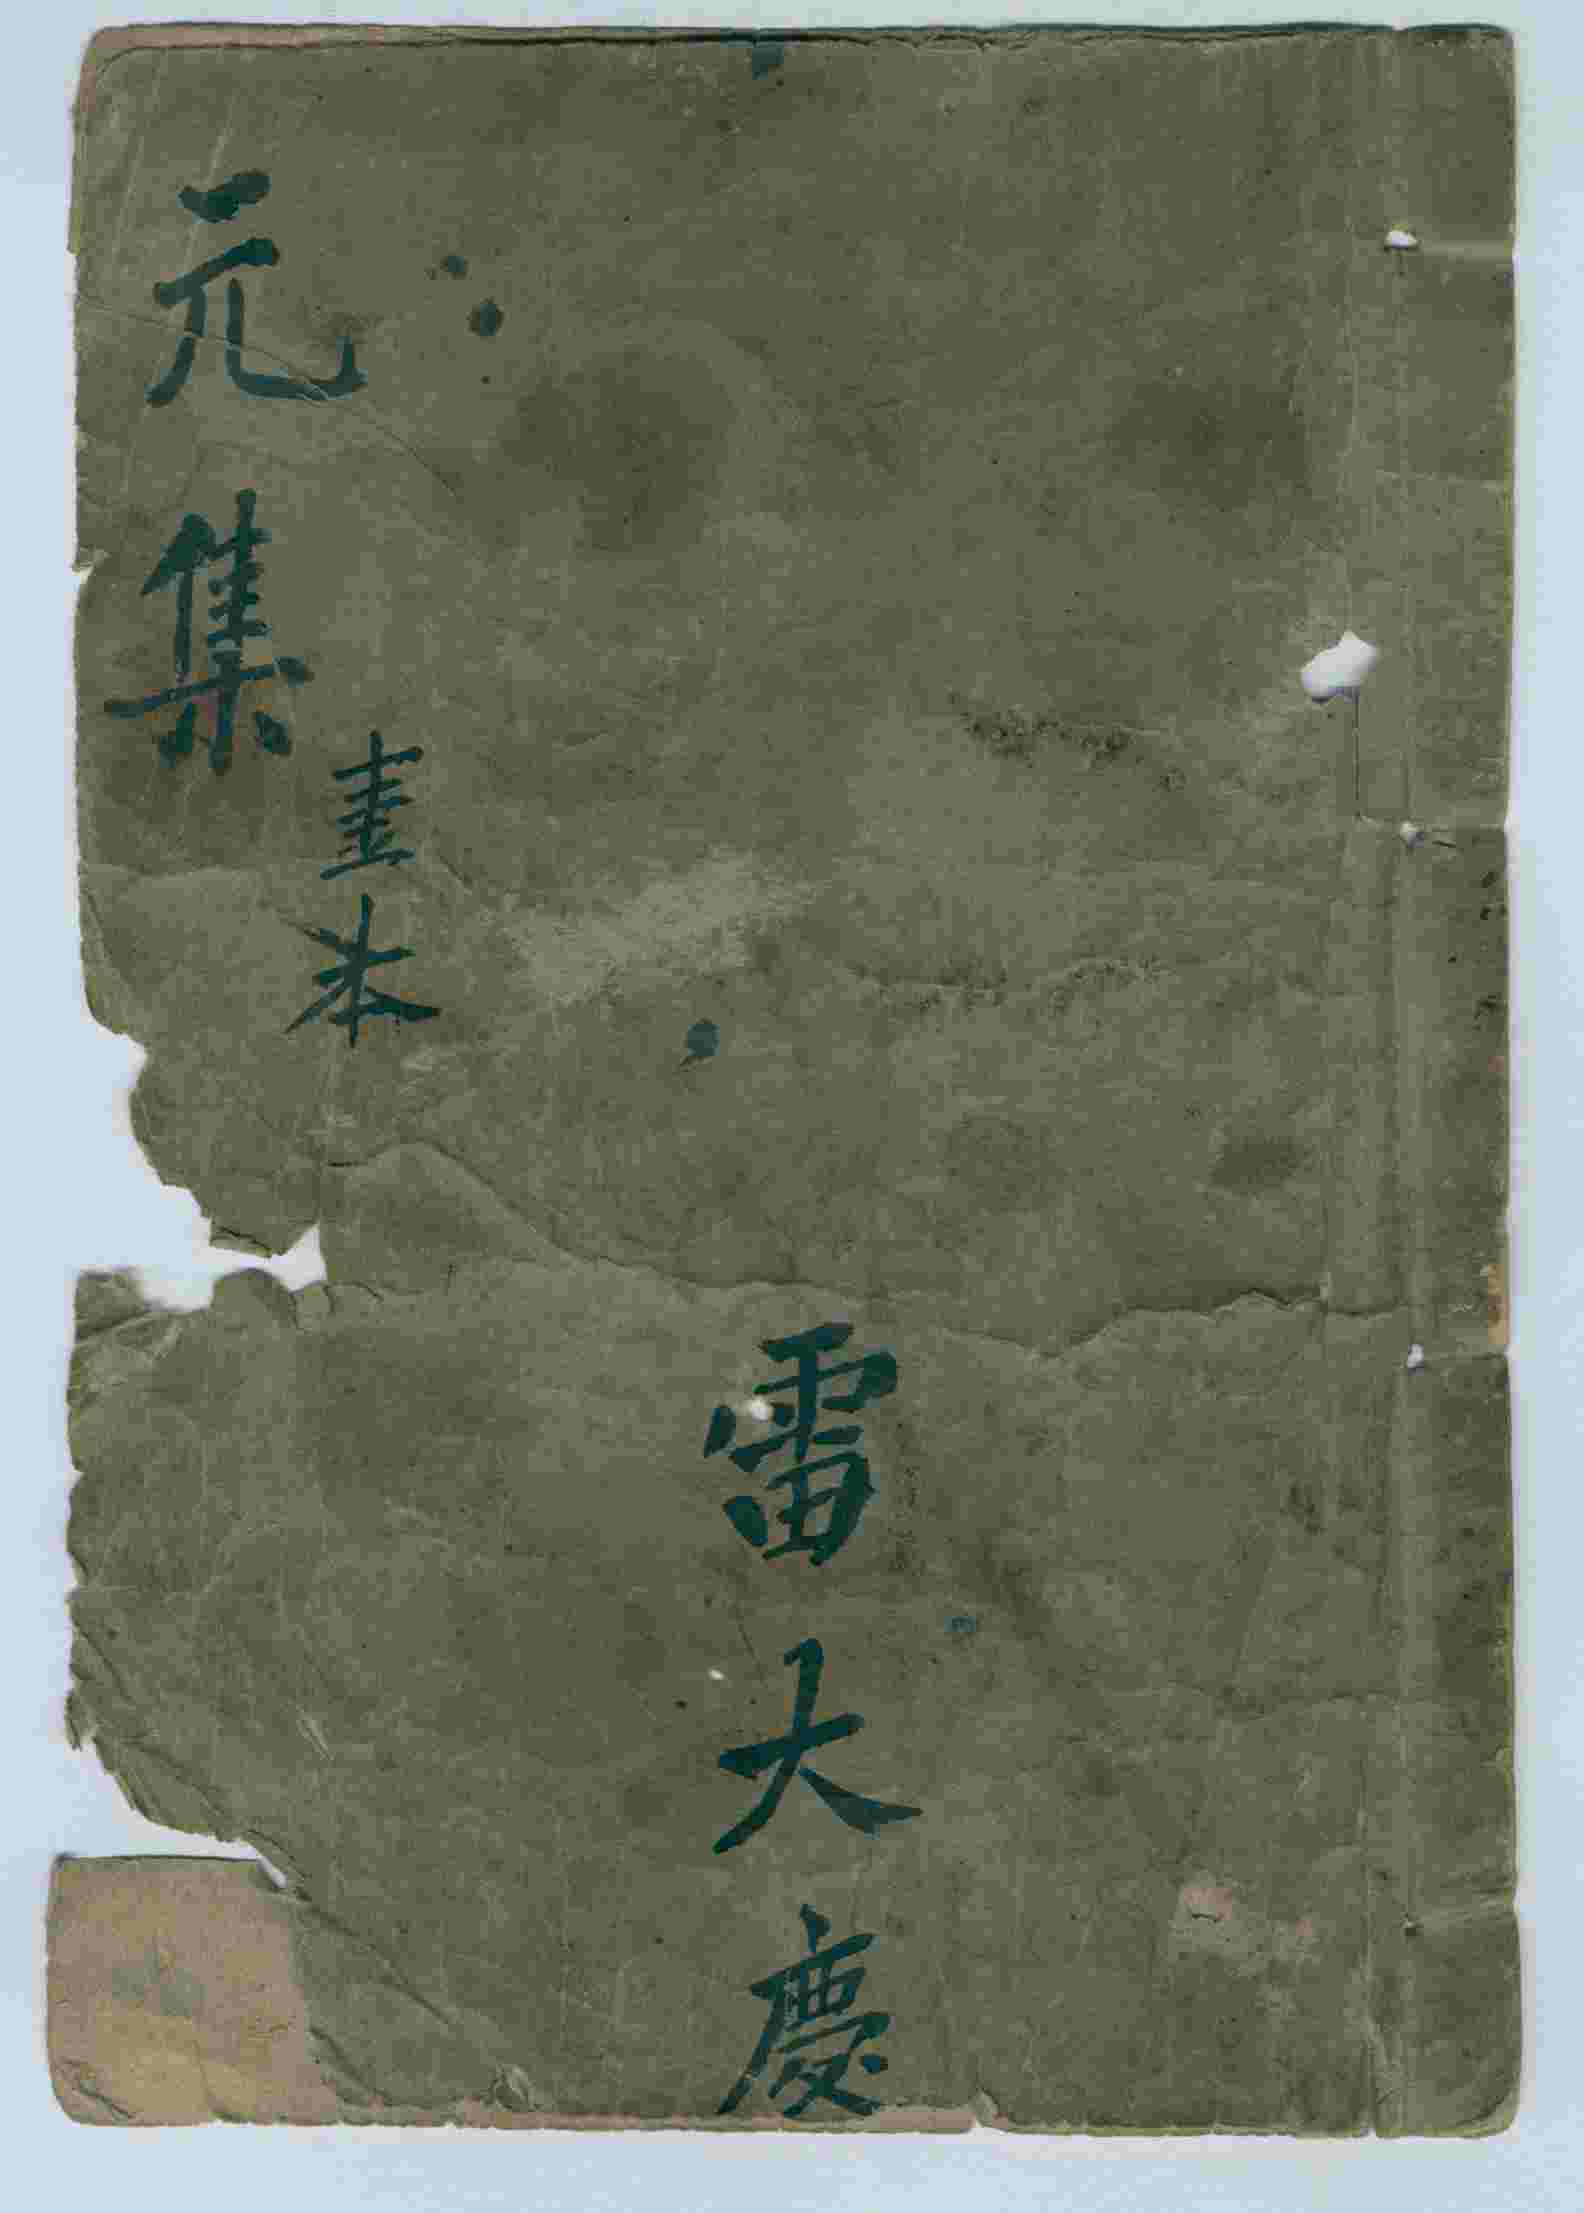 雷大慶
本
元集